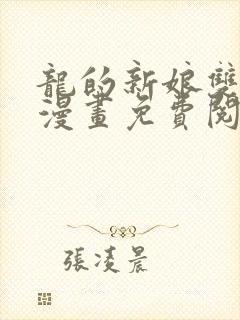 龍的新娘雙
漫畫免費閱
張凌晨